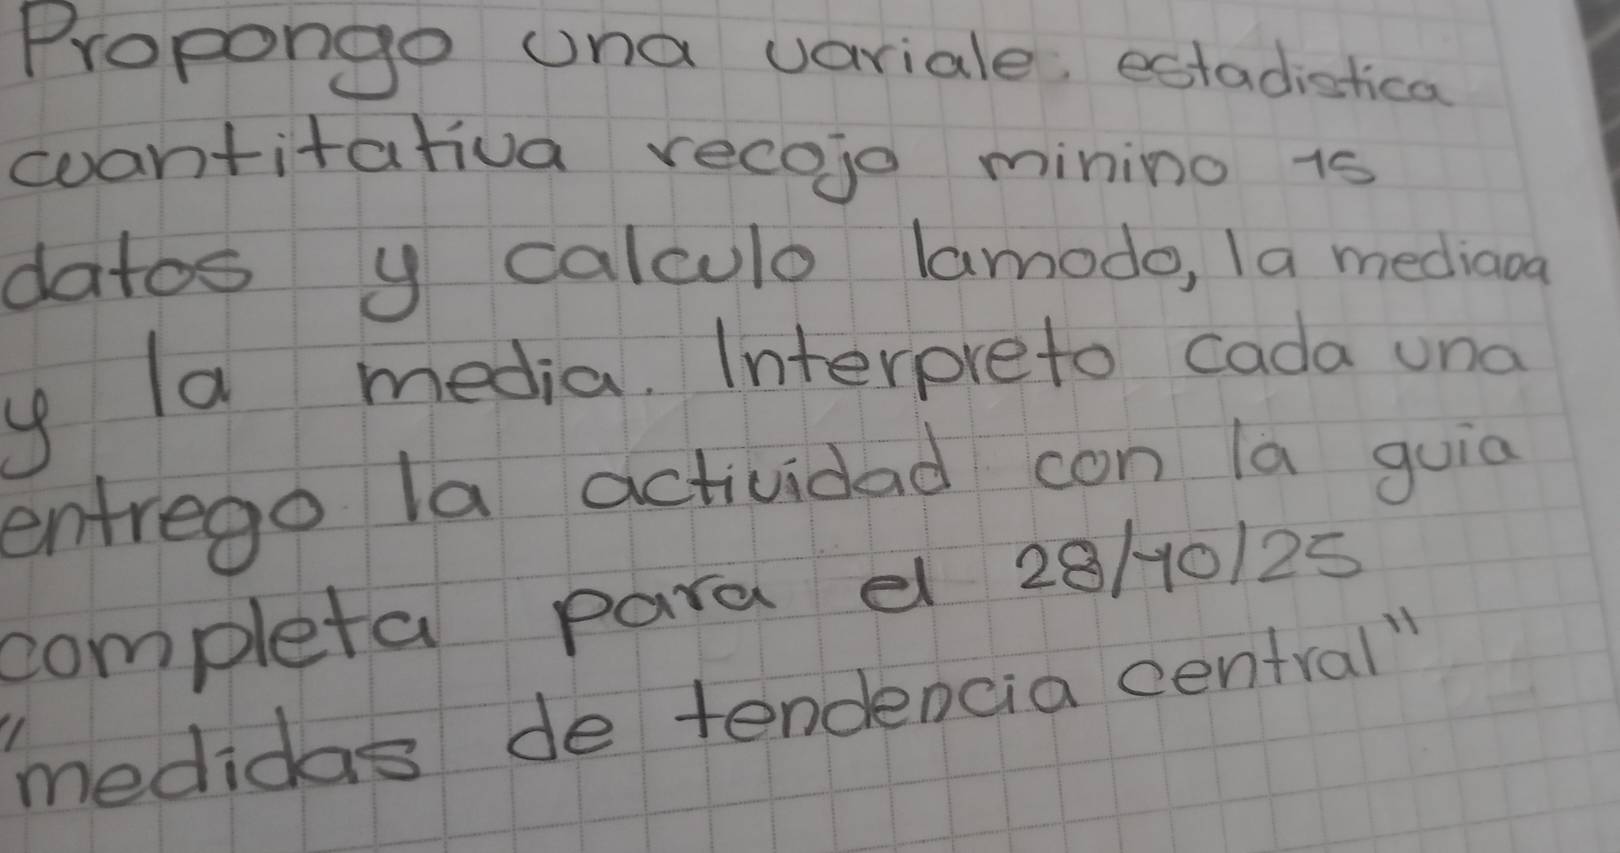 Propongo una variale. estadistica
cuantitativa recojo minino 15
datos y calculo lamodo, la mediana
y la media. Interpreto cada una
entrego la actividad con la guia
completa para el 28/10/25
"medidas de tendencia central"